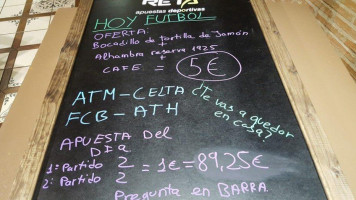 RETA
apuestas deportivas
HOY FUTBOL
OFERTA:
Bocadillo de tortilla de Jamón!
+
Alhambra reserva 1925
+
CAFE = 5€
ATM-CELTA
FCB-ATH
¿Te vas a quedar
en casa?
APUESTA DEL
DIA
1º Partido 2
2º Partido 2
= 1€ = 89,25€
Pregunta en BARRA.